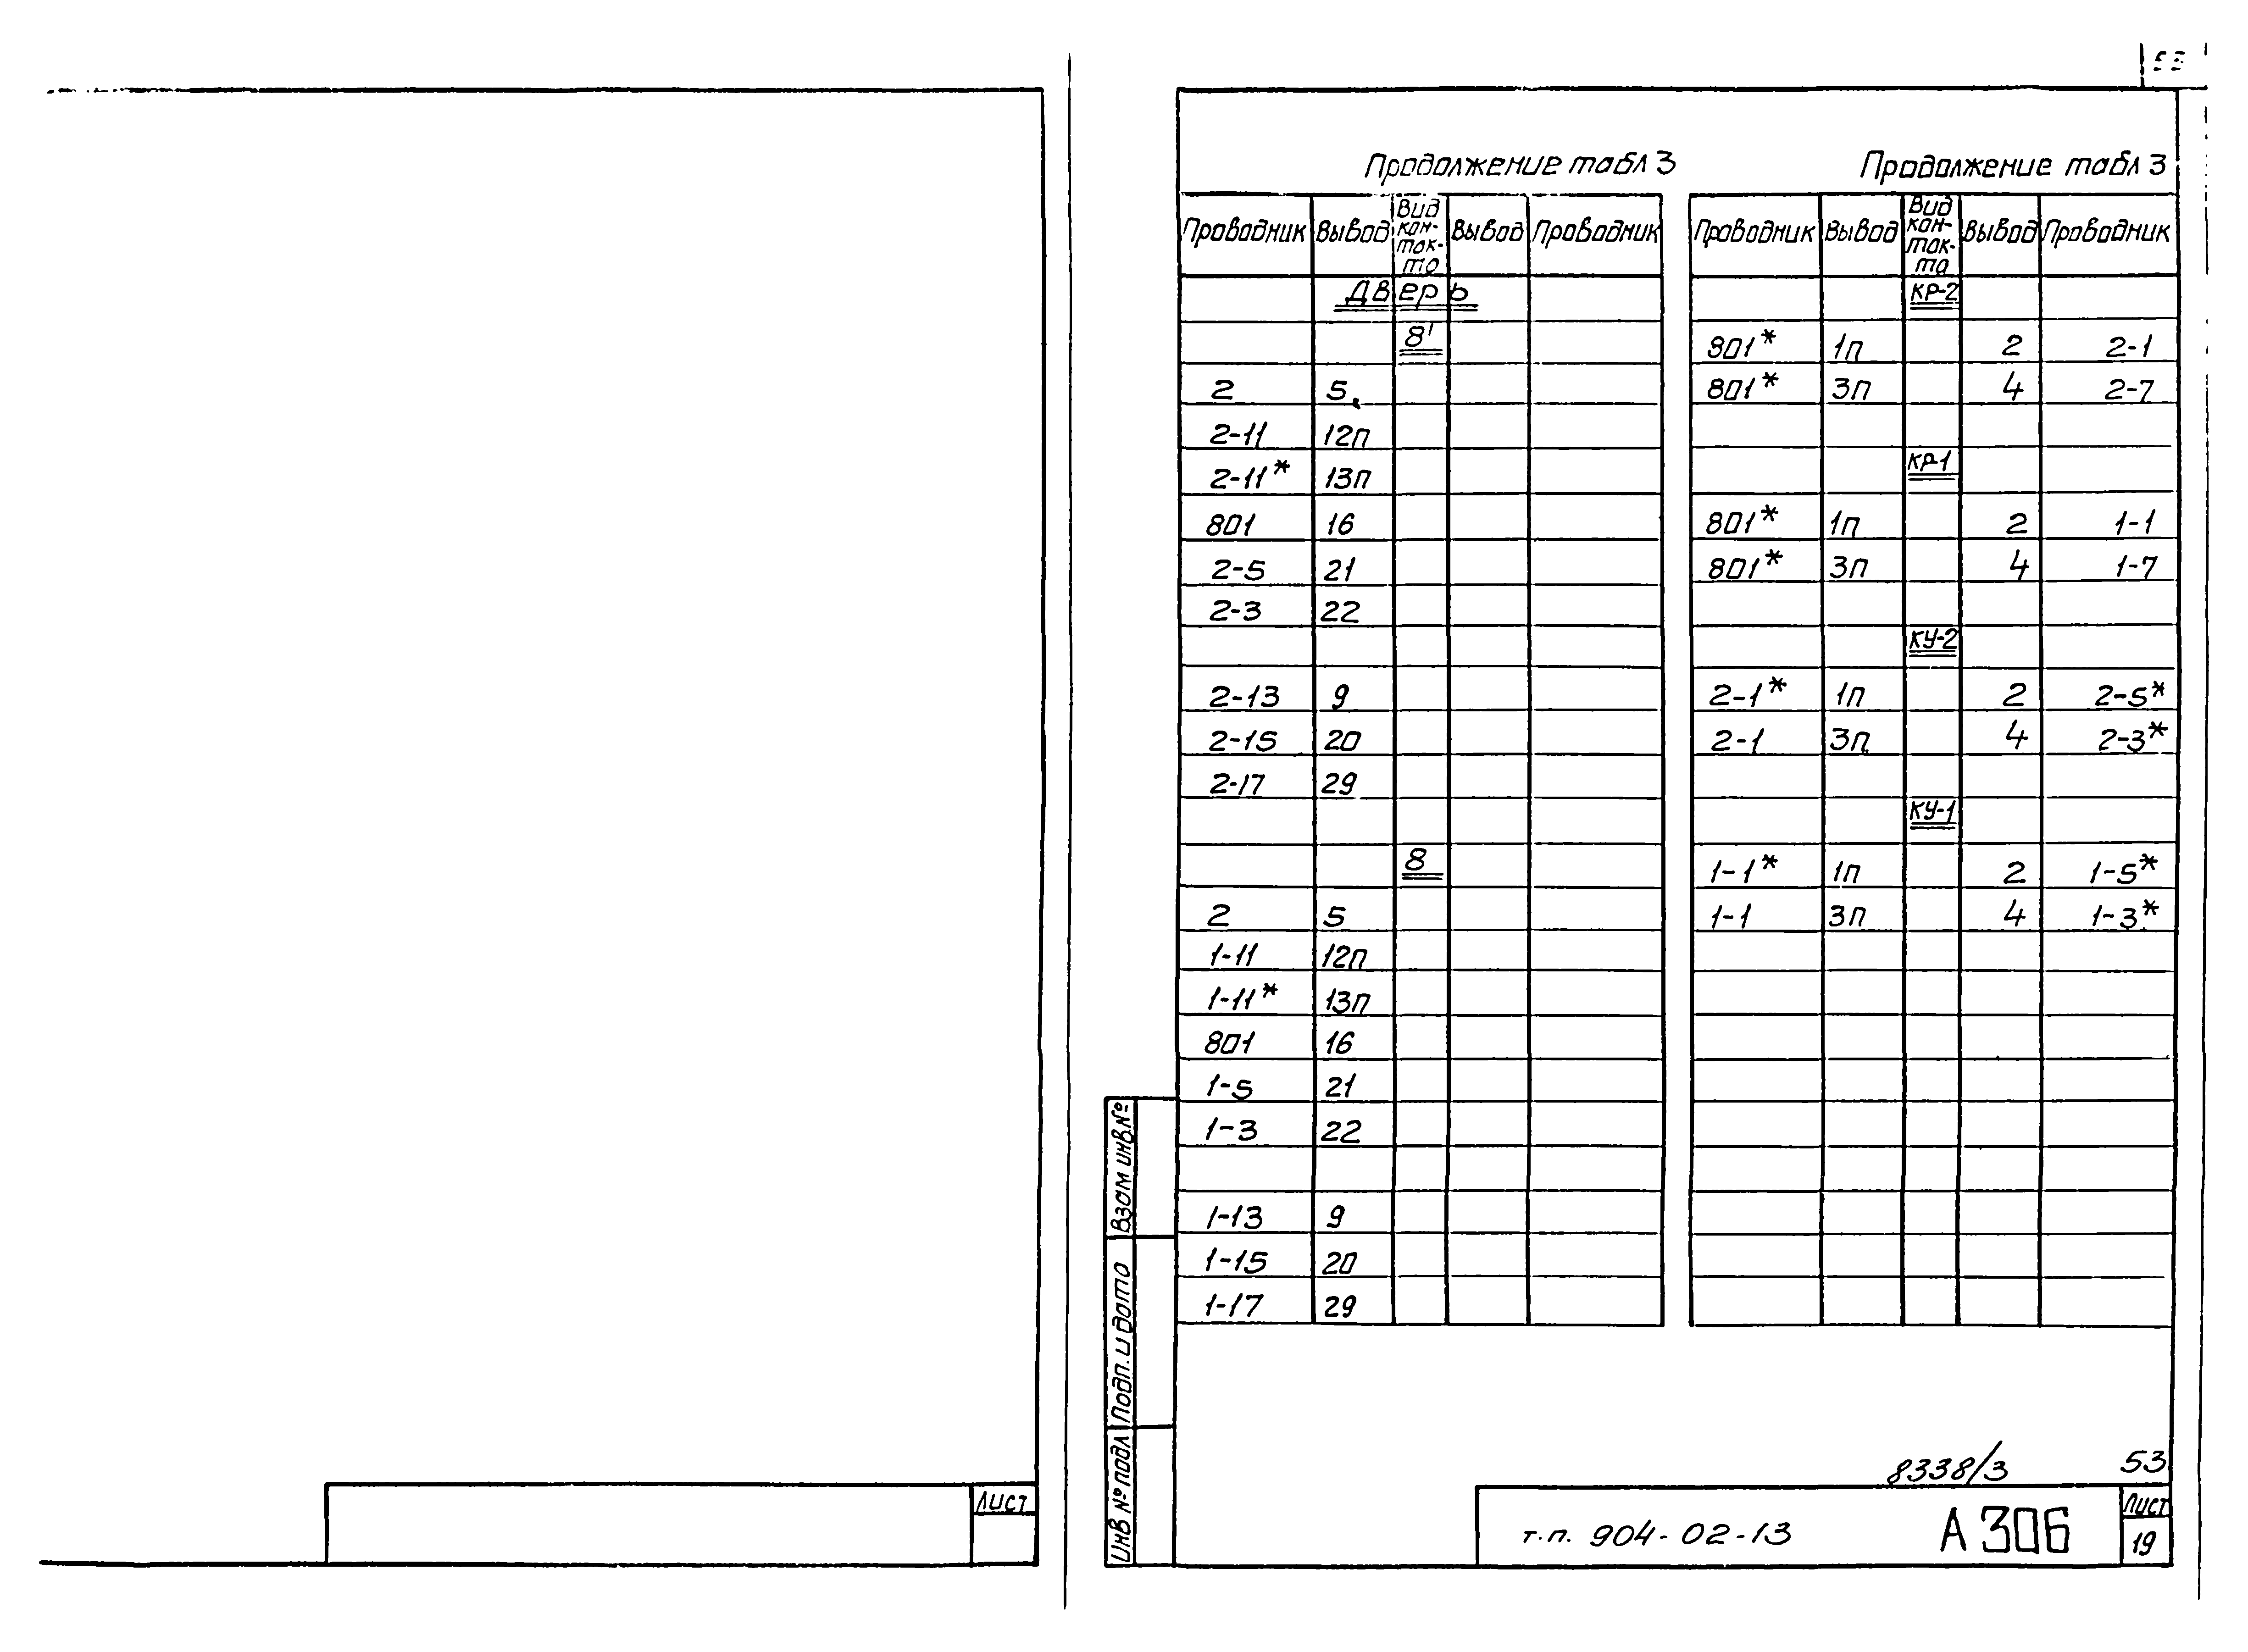 Лист
Продолжение табл 3
Проводник Вывод Вид кон- так- та Вывод Проводник
Дверь
8'
2 5
2-11 12п
2-11* 13п
801 16
2-5 21
2-3 22
2-13 9
2-15 20
2-17 29
8
2 5
1-11 12п
1-11* 13п
801 16
1-5 21
1-3 22
1-13 9
1-15 20
1-17 29
Продолжение табл 3
Проводник Вывод Вид кон- так- та Вывод Проводник
КР-2
801* 1п 2 2-1
801* 3п 4 2-7
КР-1
801* 1п 2 1-1
801* 3п 4 1-7
КУ-2
2-1* 1п 2 2-5*
2-1 3п 4 2-3*
КУ-1
1-1* 1п 2 1-5*
1-1 3п 4 1-3*
Взам инв.№
Подп. и дата
Инв № подл
8338/3 53
т.п. 904-02-13 А306
Лист
19